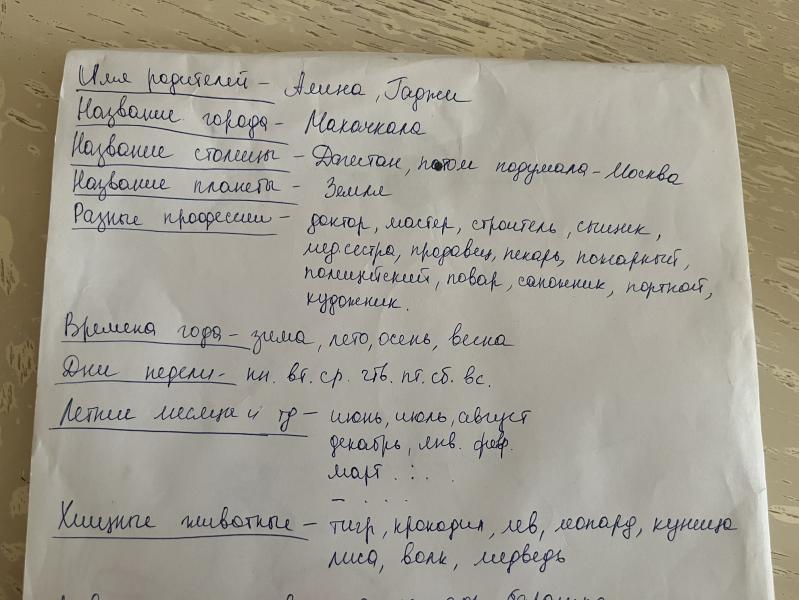 Имя родителей – Амина, Гаджи
Название города – Махачкала
Название столицы – Дагестан, потом подумала – Москва
Название планеты – Земля
Разные профессии – доктор, мастер, строитель, сыщик,
мед.сестра, продавец, пекарь, пожарный,
полицейский, повар, сапожник, портной,
художник.
Времена года – зима, лето, осень, весна
Дни недели – пн. вт. ср. чтв. пт. сб. вс.
Летние месяца и тд – июнь, июль, август
декабрь, янв. фев.
март . . .
– . . . .
Хищные животные – тигр, крокодил, лев, леопард, куница
лиса, волк, медведь